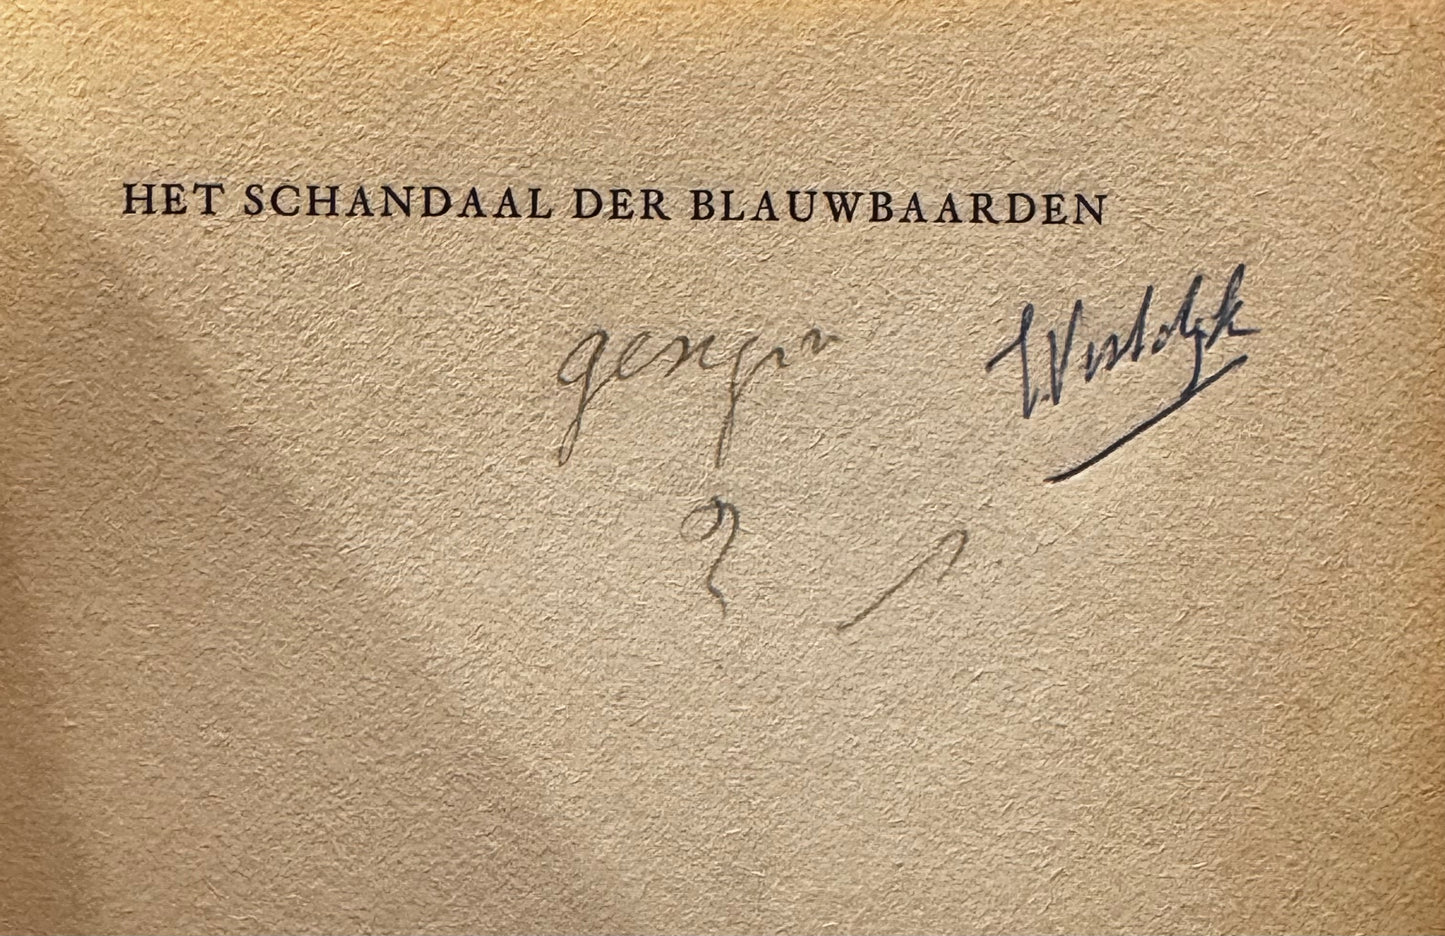 HET SCHANDAAL DER BLAUWBAARDEN
S. Vestdijk